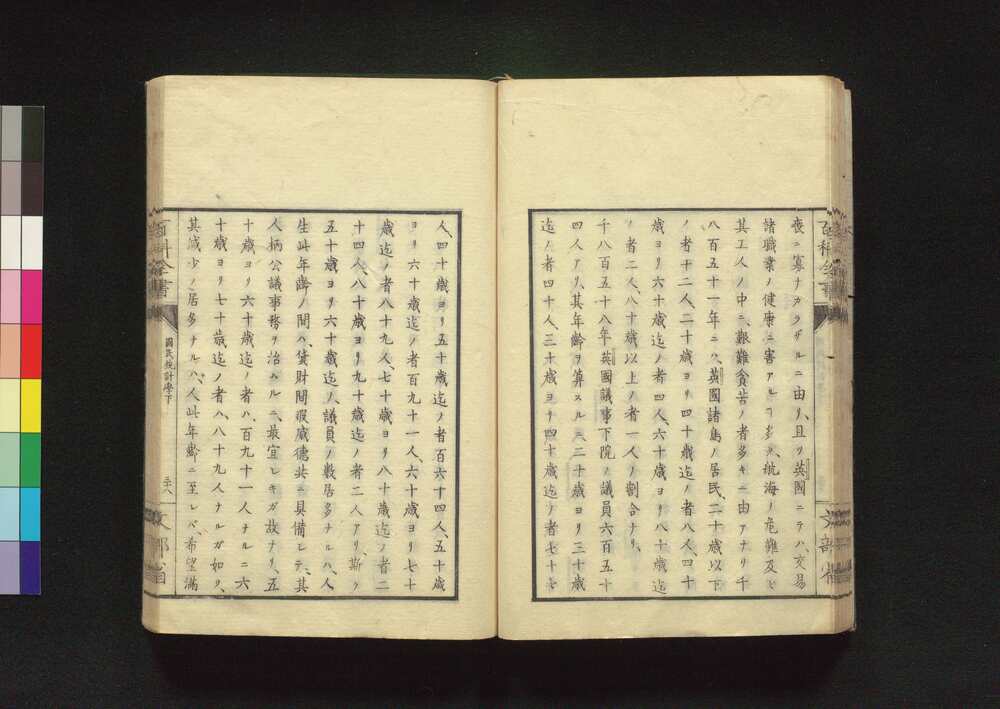 喪ニ寡ナカラザルニ由リ、且ツ英國ニテハ、交易
諸職業ノ健康ニ害アルヿ多ク、航海ノ危難及ビ
其工人ノ中ニ、艱難貪苦ノ者多キニ由アナリ千
八百五十一年ニハ、英國諸島ノ居民、二十歳以下
ノ者十二人、二十歳ヨリ四十歳迄ノ者八人、四十
歳ヨリ六十歳迄ノ者四人、六十歳ヨリ八十歳迄
ノ者二人、八十歳以上ノ者一人ノ割合ナリ、
千八百五十八年英國議事下院ノ議員六百五十
四人アリ、其年齡ヲ算スルニ、二十歳ヨリ三十歳
迄ノ者四十人、三十歳ヨリ四十歳迄ノ者七十七
人、四十歳ヨリ五十歳迄ノ者百六十四人、五十歳
ヨリ六十歳迄ノ者百九十一人、六十歳ヨリ七十
歳迄ノ者八十九人、七十歳ヨリ八十歳迄ノ者二
十四人、八十歳ヨリ九十歳迄ノ者二人アリ、斯ク
五十歳ヨリ六十歳迄ノ議員ノ數居多ナルハ、人
生此年齡ノ間ハ、貨財閒暇威德共ニ具備シテ、其
人柄公議事務ヲ治ムルニ、最宜シキガ故ナリ、五
十歳ヨリ六十歳迄ノ者ハ、百九十一人ナルニ六
十歳ヨリ七十歳迄ノ者ハ、八十九人ナルガ如ク、
其減少ノ居多ナルハ、人此年齡ニ至レバ、希望滿
百科全書
國民統計學下
三十八
文部省